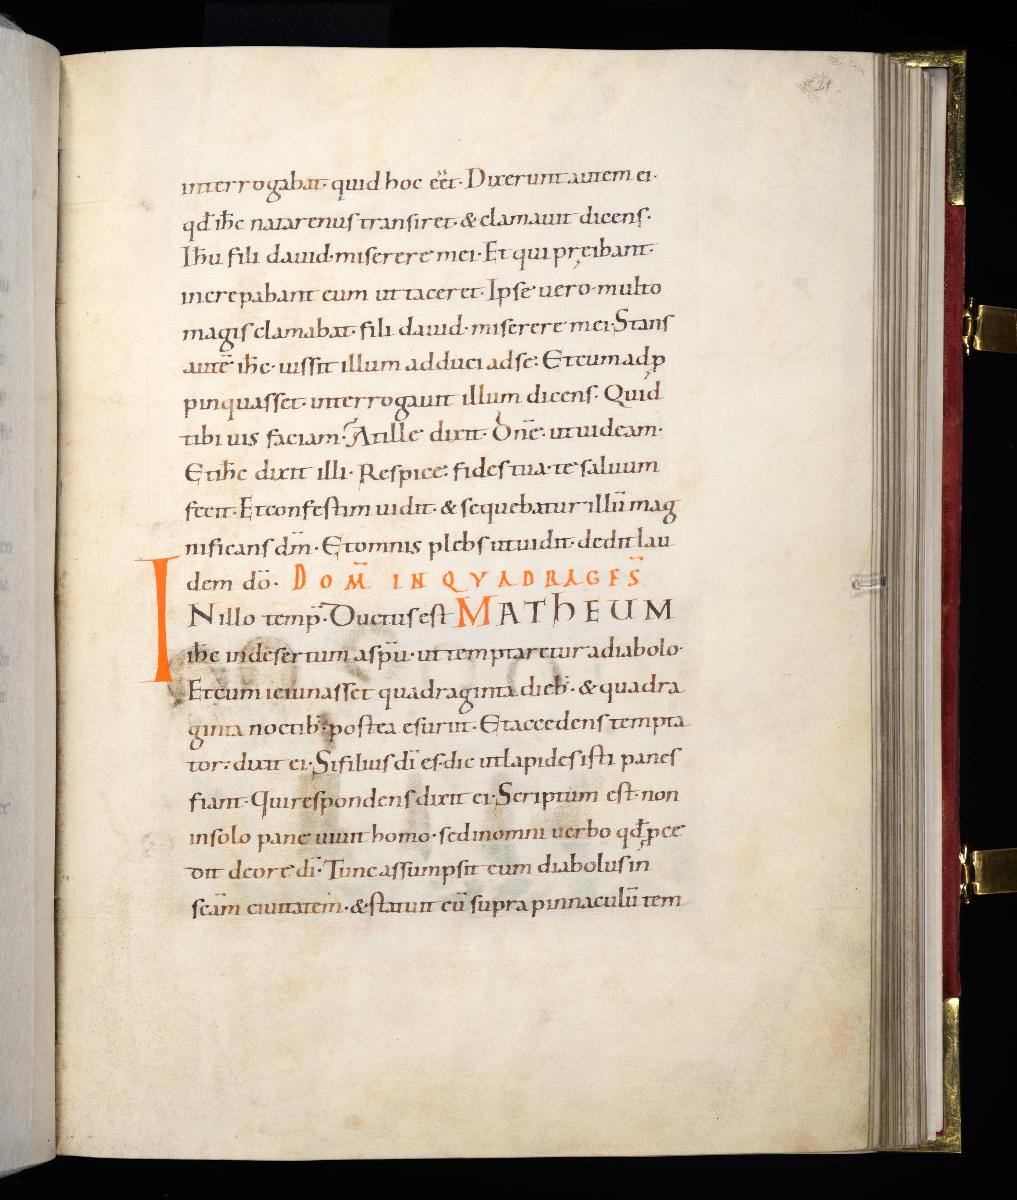 21
interrogabat· quid hoc eēt· Dixerunt autem ei·
qđ ih̄c nazarenus transiret· & clamauit dicens·
Ih̄u fili dauid· miserere mei· Et qui pręibant·
increpabant eum ut taceret· Ipse uero multo
magis clamabat· fili dauid· miserere mei· Stans
autē ih̄c· iussit illum adduci ad se· Et cum adp̱
pinquasset· interrogauit illum dicens· Quid
tibi uis faciam· At ille dixit· Dn̄e· ut uideam·
Et ih̄c dixit illi· Respice· fides tua te saluum
fecit· Et confestim uidit· & sequebatur illū mag
nificans dm̄· Et omnis plebs ut uidit· dedit lau
dem dō· DOM̄ IN QVADRAGES̄
IN illo temp̄· Ductus est MATHEUM
ih̄c in desertum a sp̄u· ut temptaretur a diabolo·
Et cum ieiunasset quadraginta dieb;· & quadra
ginta noctib;· postea esuriit· Et accedens tempta
tor· dixit ei· Si filius dī es· dic ut lapides isti panes
fiant· Qui respondens dixit ei· Scriptum est· non
in solo pane uiuit homo· sed in omni uerbo qđ p̱ce
dit de ore dī· Tunc assumpsit eum diabolus in
sc̄am ciuitatem· & statuit eū supra pinnaculū tem